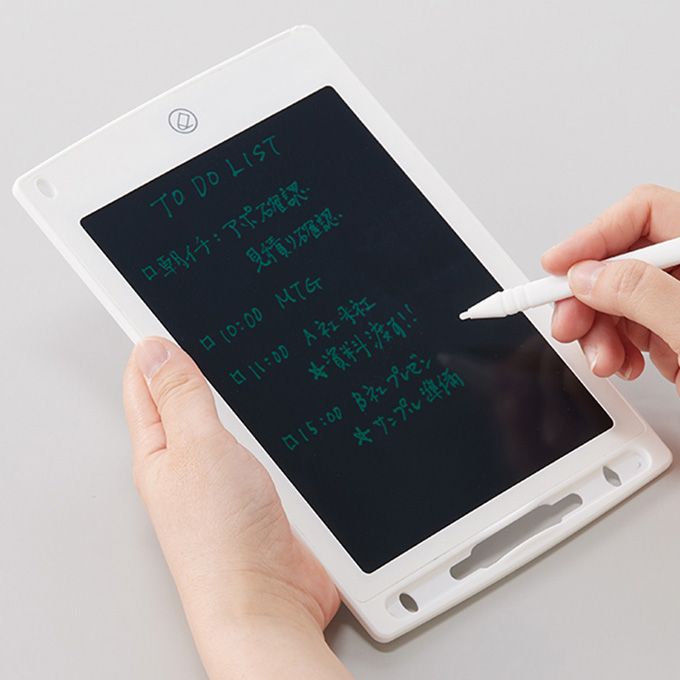 TO DO LIST
□朝イチ：アポ確認
見積り確認
□10:00 MTG
□11:00 A社来社
★資料渡す!!
□15:00 B社プレゼン
★サンプル準備